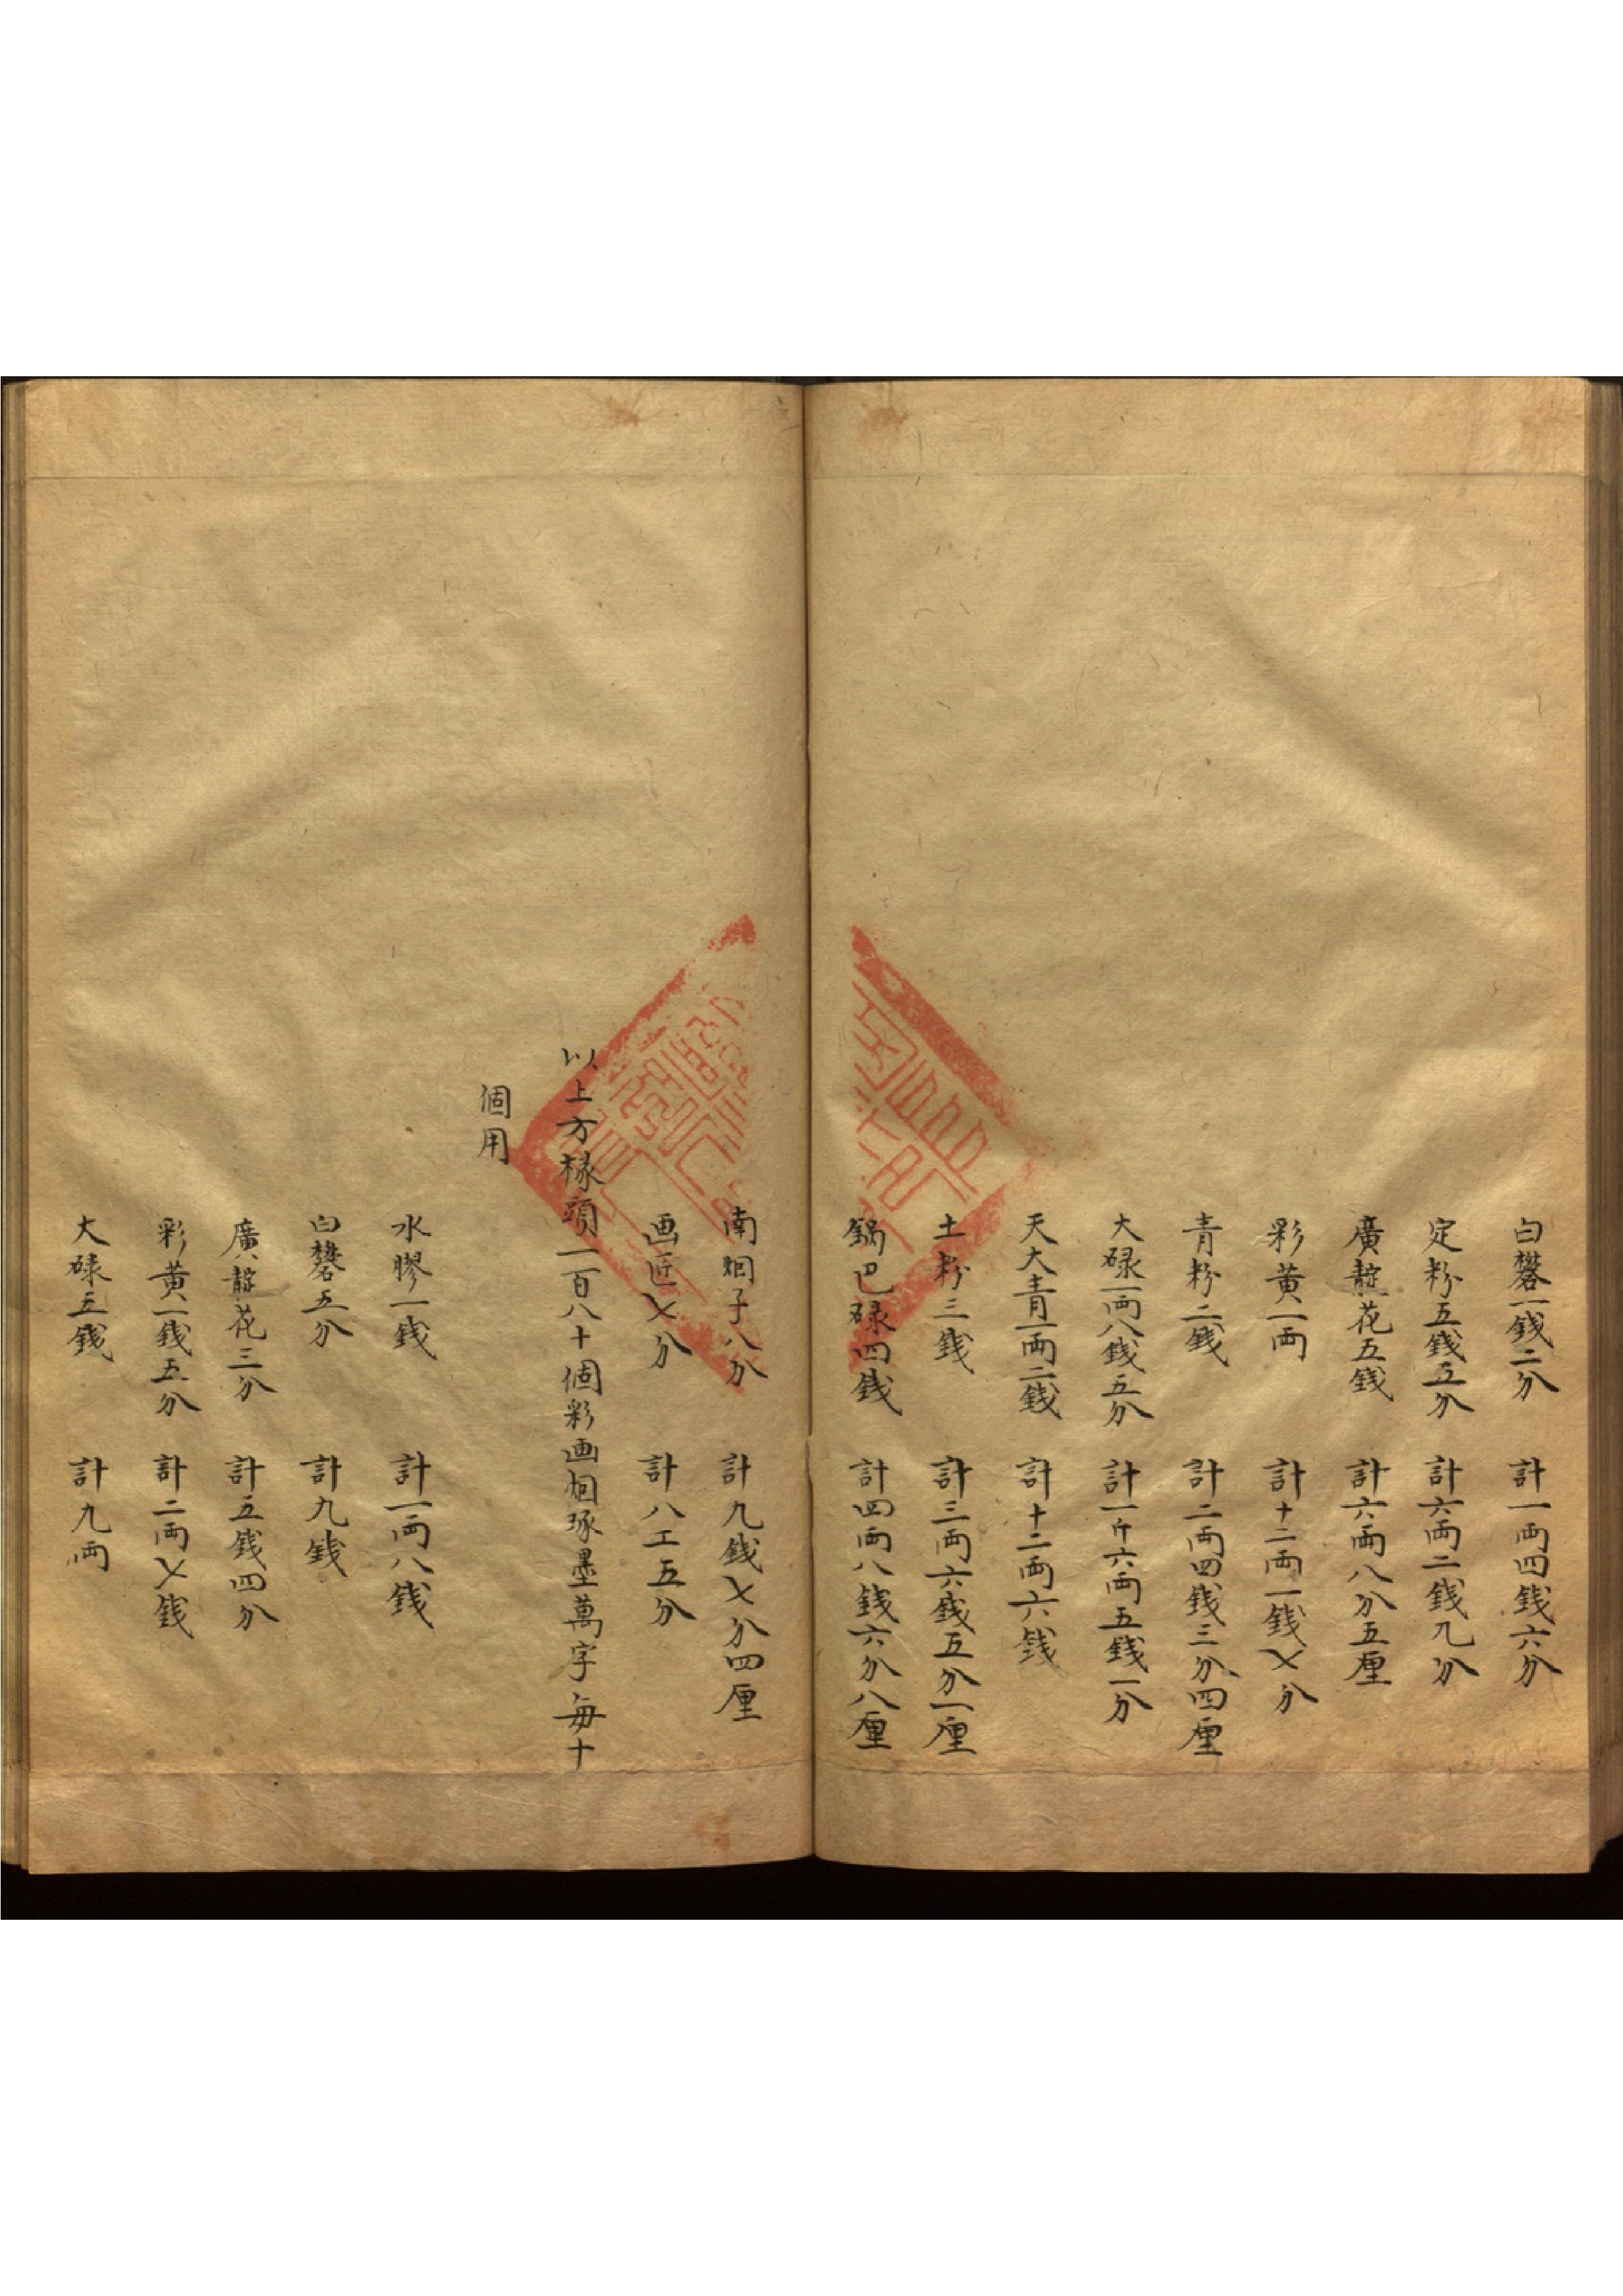 白礬一錢二分　計一両四錢六分
定粉五錢五分　計六両二錢九分
廣靛花五錢　計六両八分五厘
彩黄一両　計十二両一錢七分
青粉二錢　計二両四錢三分四厘
大碌一両八錢五分　計一斤六両五錢一分
天大青一両二錢　計十二両六錢
土粉三錢　計三両六錢五分一厘
鍋巴碌四錢　計四両八錢六分八厘
南烟子八分　計九錢七分四厘
画匠七分　計八工五分
以上方椽頭一百八十個彩画烟琢墨萬字每十
個用
水膠一錢　計一両八錢
白礬五分　計九錢
廣靛花三分　計五錢四分
彩黄一錢五分　計二両七錢
大碌五錢　計九両